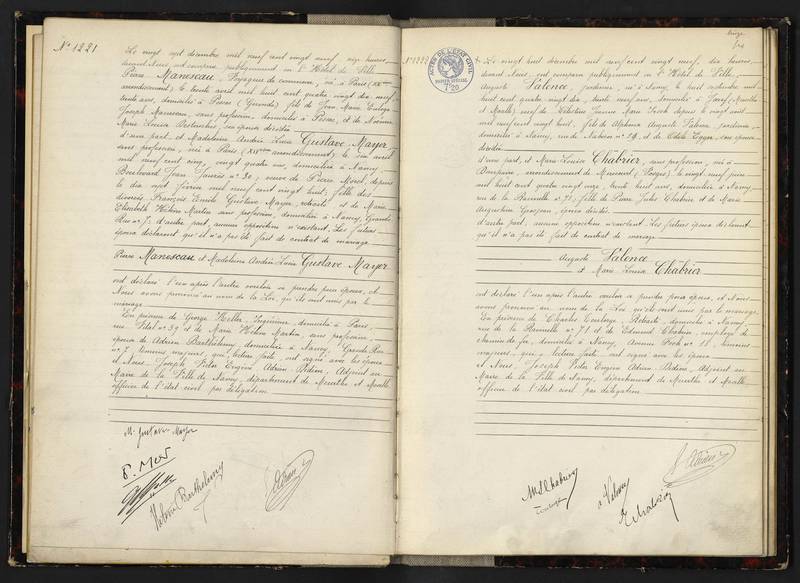 N° 1221
Le vingt sept décembre mil neuf cent vingt neuf, heures,
devant Nous ont comparu publiquement en l'Hôtel de Ville
Pierre Manescau, Voyageur de commerce, né à Paris
arrondissement), le trente avril mil huit cent quatre vingt dix neuf,
trente ans, domicilié à Pessac (Gironde), fils de Jean Marie
Joseph Manescau, sans profession, domicilié à Pessac, et de
Marie Louise son épouse décédée
d'une part, et Madeleine Andrée Lucie Gustave Mayer,
sans profession, née à Paris arrondissement), le six avril
mil neuf cent cinq, vingt quatre ans, domiciliée à Nancy,
Boulevard Jean Jaurès n° 30; veuve de Pierre Morel, depuis
le dix sept février mil neuf cent vingt huit; fille des
divorcés, François Emile Gustave Mayer, décédé et de Marie
Elisabeth Hélène Martin sans profession, domiciliée à Nancy, Grande
Rue n° 7; d'autre part; aucune opposition n'existant. Les futurs
époux déclarent qu'il n'a pas été fait de contrat de mariage
Pierre Manescau et Madeleine Andrée Lucie Gustave Mayer
ont déclaré l'un après l'autre vouloir se prendre pour époux, et
Nous avons prononcé au nom de la Loi, qu'ils sont unis par le
mariage
En présence de George Heller, Ingénieur, domicilié à Paris,
rue Vital n° 39 et de Marie Hélène Martin, sans profession,
épouse de Adrien Barthélemy, domiciliée à Nancy, Grande Rue
n° 7, témoins majeurs, qui, lecture faite, ont signé avec les époux
et Nous, Joseph Victor Eugène Adrien Bédon, Adjoint au
Maire de la Ville de Nancy, département de Meurthe et Moselle
officier de l'état civil par délégation
M. Gustave-Mayer
Barthélemy
N° 1222
Le vingt huit décembre mil neuf cent vingt neuf, dix heures,
devant Nous, ont comparu publiquement en l'Hôtel de Ville,
Auguste Valence, jardinier, né à Nancy, le huit septembre mil
huit cent quatre vingt dix, trente neuf ans, domicilié à
et Moselle) veuf de Jeanne depuis le vingt août
mil neuf cent vingt huit, fils de Alphonse Auguste Valence, jardinier,
domicilié à Nancy, rue de n° 29, et de Odile Egger, son épouse
décédée
d'une part, et Marie Louise Chabrier, sans profession, née à
arrondissement de Mirecourt (Vosges), le vingt neuf juin
mil huit cent quatre vingt onze, trente huit ans, domiciliée à Nancy,
rue de la n° 71; fille de Pierre Jules Chabrier et de Marie
Augustine époux décédés
d'autre part; aucune opposition n'existant. Les futurs époux déclarent
qu'il n'a pas été fait de contrat de mariage
Auguste Valence
et Marie Louise Chabrier
ont déclaré l'un après l'autre vouloir se prendre pour époux, et Nous
avons prononcé au nom de la Loi, qu'ils sont unis par le mariage
En présence de Charles Toulorge, domicilié à Nancy,
rue de la n° 71 et de Edmond Chabrier, employé de
chemin de fer, domicilié à Nancy, Avenue Foch n° 11, témoins
majeurs, qui, lecture faite, ont signé avec les époux
et Nous, Joseph Victor Eugène Adrien Bédon, Adjoint au
Maire de la Ville de Nancy, département de Meurthe et Moselle
officier de l'état civil par délégation
ACTES DE L'ETAT CIVIL
PAPIER SPECIAL
1F20
M L Chabrier
Toulorge